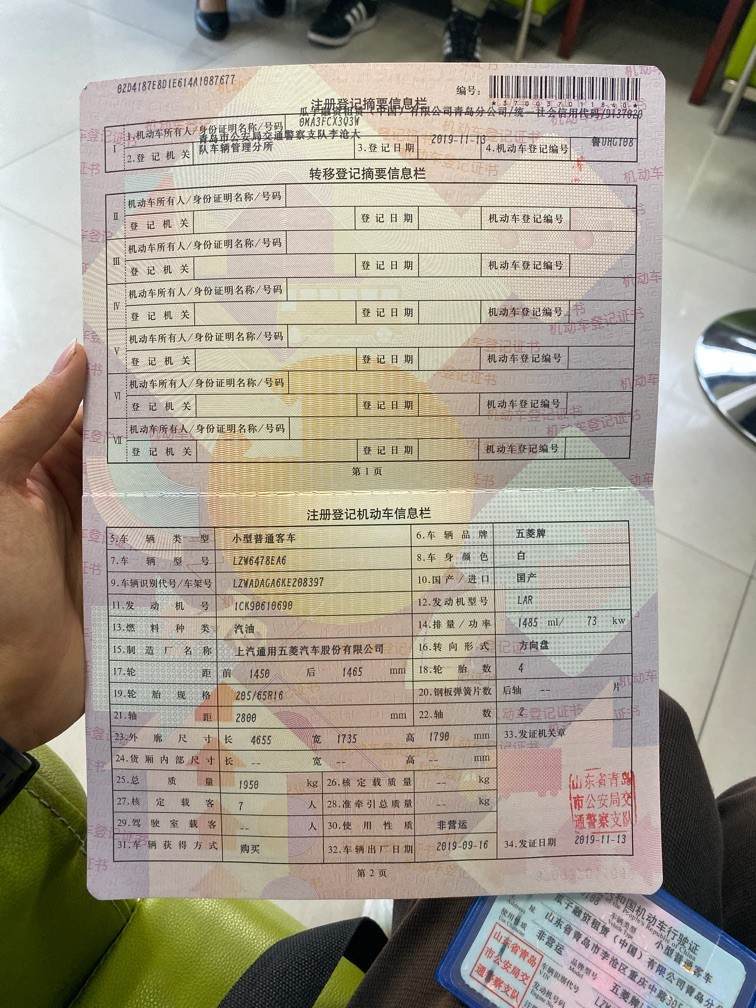 02D4187E8D1E614A1087677
编号：
注册登记摘要信息栏
瓜子融资租赁（中国）有限公司青岛分公司/统一社会信用代码/9137020
Ⅰ 1.机动车所有人/身份证明名称/号码 0MA3FCX3Q3W
青岛市公安局交通警察支队李沧大
2.登记机关 队车辆管理分所 3.登记日期 2019-11-13 4.机动车登记编号
转移登记摘要信息栏
Ⅱ 机动车所有人/身份证明名称/号码
登记机关 登记日期 机动车登记编号
Ⅲ 机动车所有人/身份证明名称/号码
登记机关 登记日期 机动车登记编号
Ⅳ 机动车所有人/身份证明名称/号码
登记机关 登记日期 机动车登记编号
Ⅴ 机动车所有人/身份证明名称/号码
登记机关 登记日期 机动车登记编号
Ⅵ 机动车所有人/身份证明名称/号码
登记机关 登记日期 机动车登记编号
Ⅶ 机动车所有人/身份证明名称/号码
登记机关 登记日期 机动车登记编号
第1页
注册登记机动车信息栏
5.车辆类型 小型普通客车 6.车辆品牌 五菱牌
7.车辆型号 LZW6478EA6 8.车身颜色 白
9.车辆识别代号/车架号 LZWADAGA6KE208397 10.国产/进口 国产
11.发动机号 1CK90610690 12.发动机型号 LAR
13.燃料种类 汽油 14.排量/功率 1485 ml/ 73 kw
15.制造厂名称 上汽通用五菱汽车股份有限公司 16.转向形式 方向盘
17.轮距 前 1450 后 1465 mm 18.轮胎数 4
19.轮胎规格 205/65R16 20.钢板弹簧片数 后轴 -- 片
21.轴距 2800 mm 22.轴数 2
23.外廓尺寸 长 4655 宽 1735 高 1790 mm 33.发证机关章
24.货厢内部尺寸 长 -- 宽 -- 高 -- mm
25.总质量 1950 kg 26.核定载质量 -- kg
27.核定载客 7 人 28.准牵引总质量 -- kg
29.驾驶室载客 -- 人 30.使用性质 非营运
31.车辆获得方式 购买 32.车辆出厂日期 2019-09-16 34.发证日期 2019-11-13
山东省青岛
市公安局交
通警察支队
第2页
和国机动车行驶证
车辆类型 小型普通客车
瓜子融资租赁（中国）有限公司青岛分公
山东省青岛市李沧区重庆中路
非营运
五菱牌
车辆识别代号
发动机号码
山东省青岛
市公安局交
通警察支队